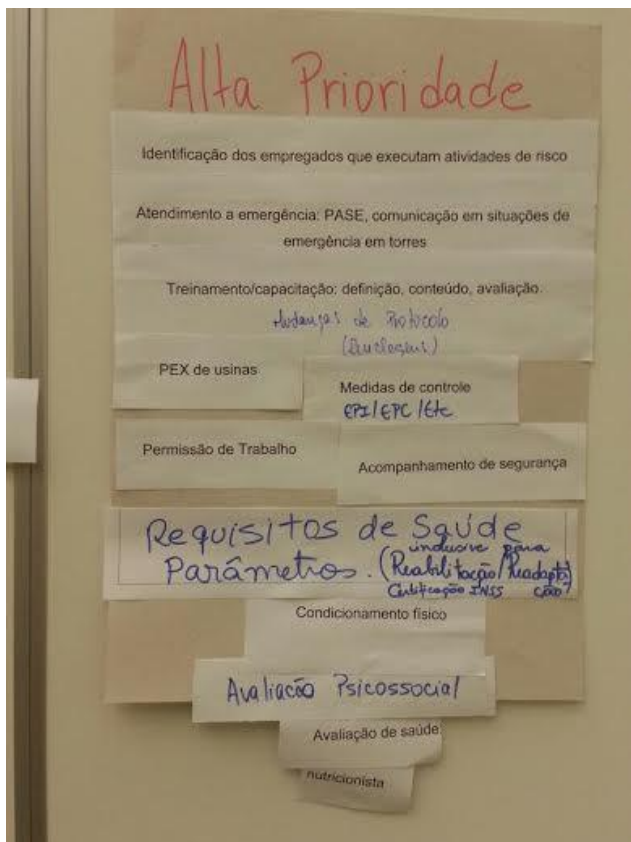 Alta Prioridade
Identificação dos empregados que executam atividades de risco
Atendimento a emergência: PASE, comunicação em situações de
emergência em torres
Treinamento/capacitação: definição, conteúdo, avaliação.
Mudanças de Protocolo
PEX de usinas
Medidas de controle
EPI/EPC/Etc
Permissão de Trabalho
Acompanhamento de segurança
Requisitos de Saúde
inclusive para
Parâmetros. (Reabilitação/Readapta
Certificação INSS ção)
Condicionamento físico
Avaliação Psicossocial
Avaliação de saúde
nutricionista